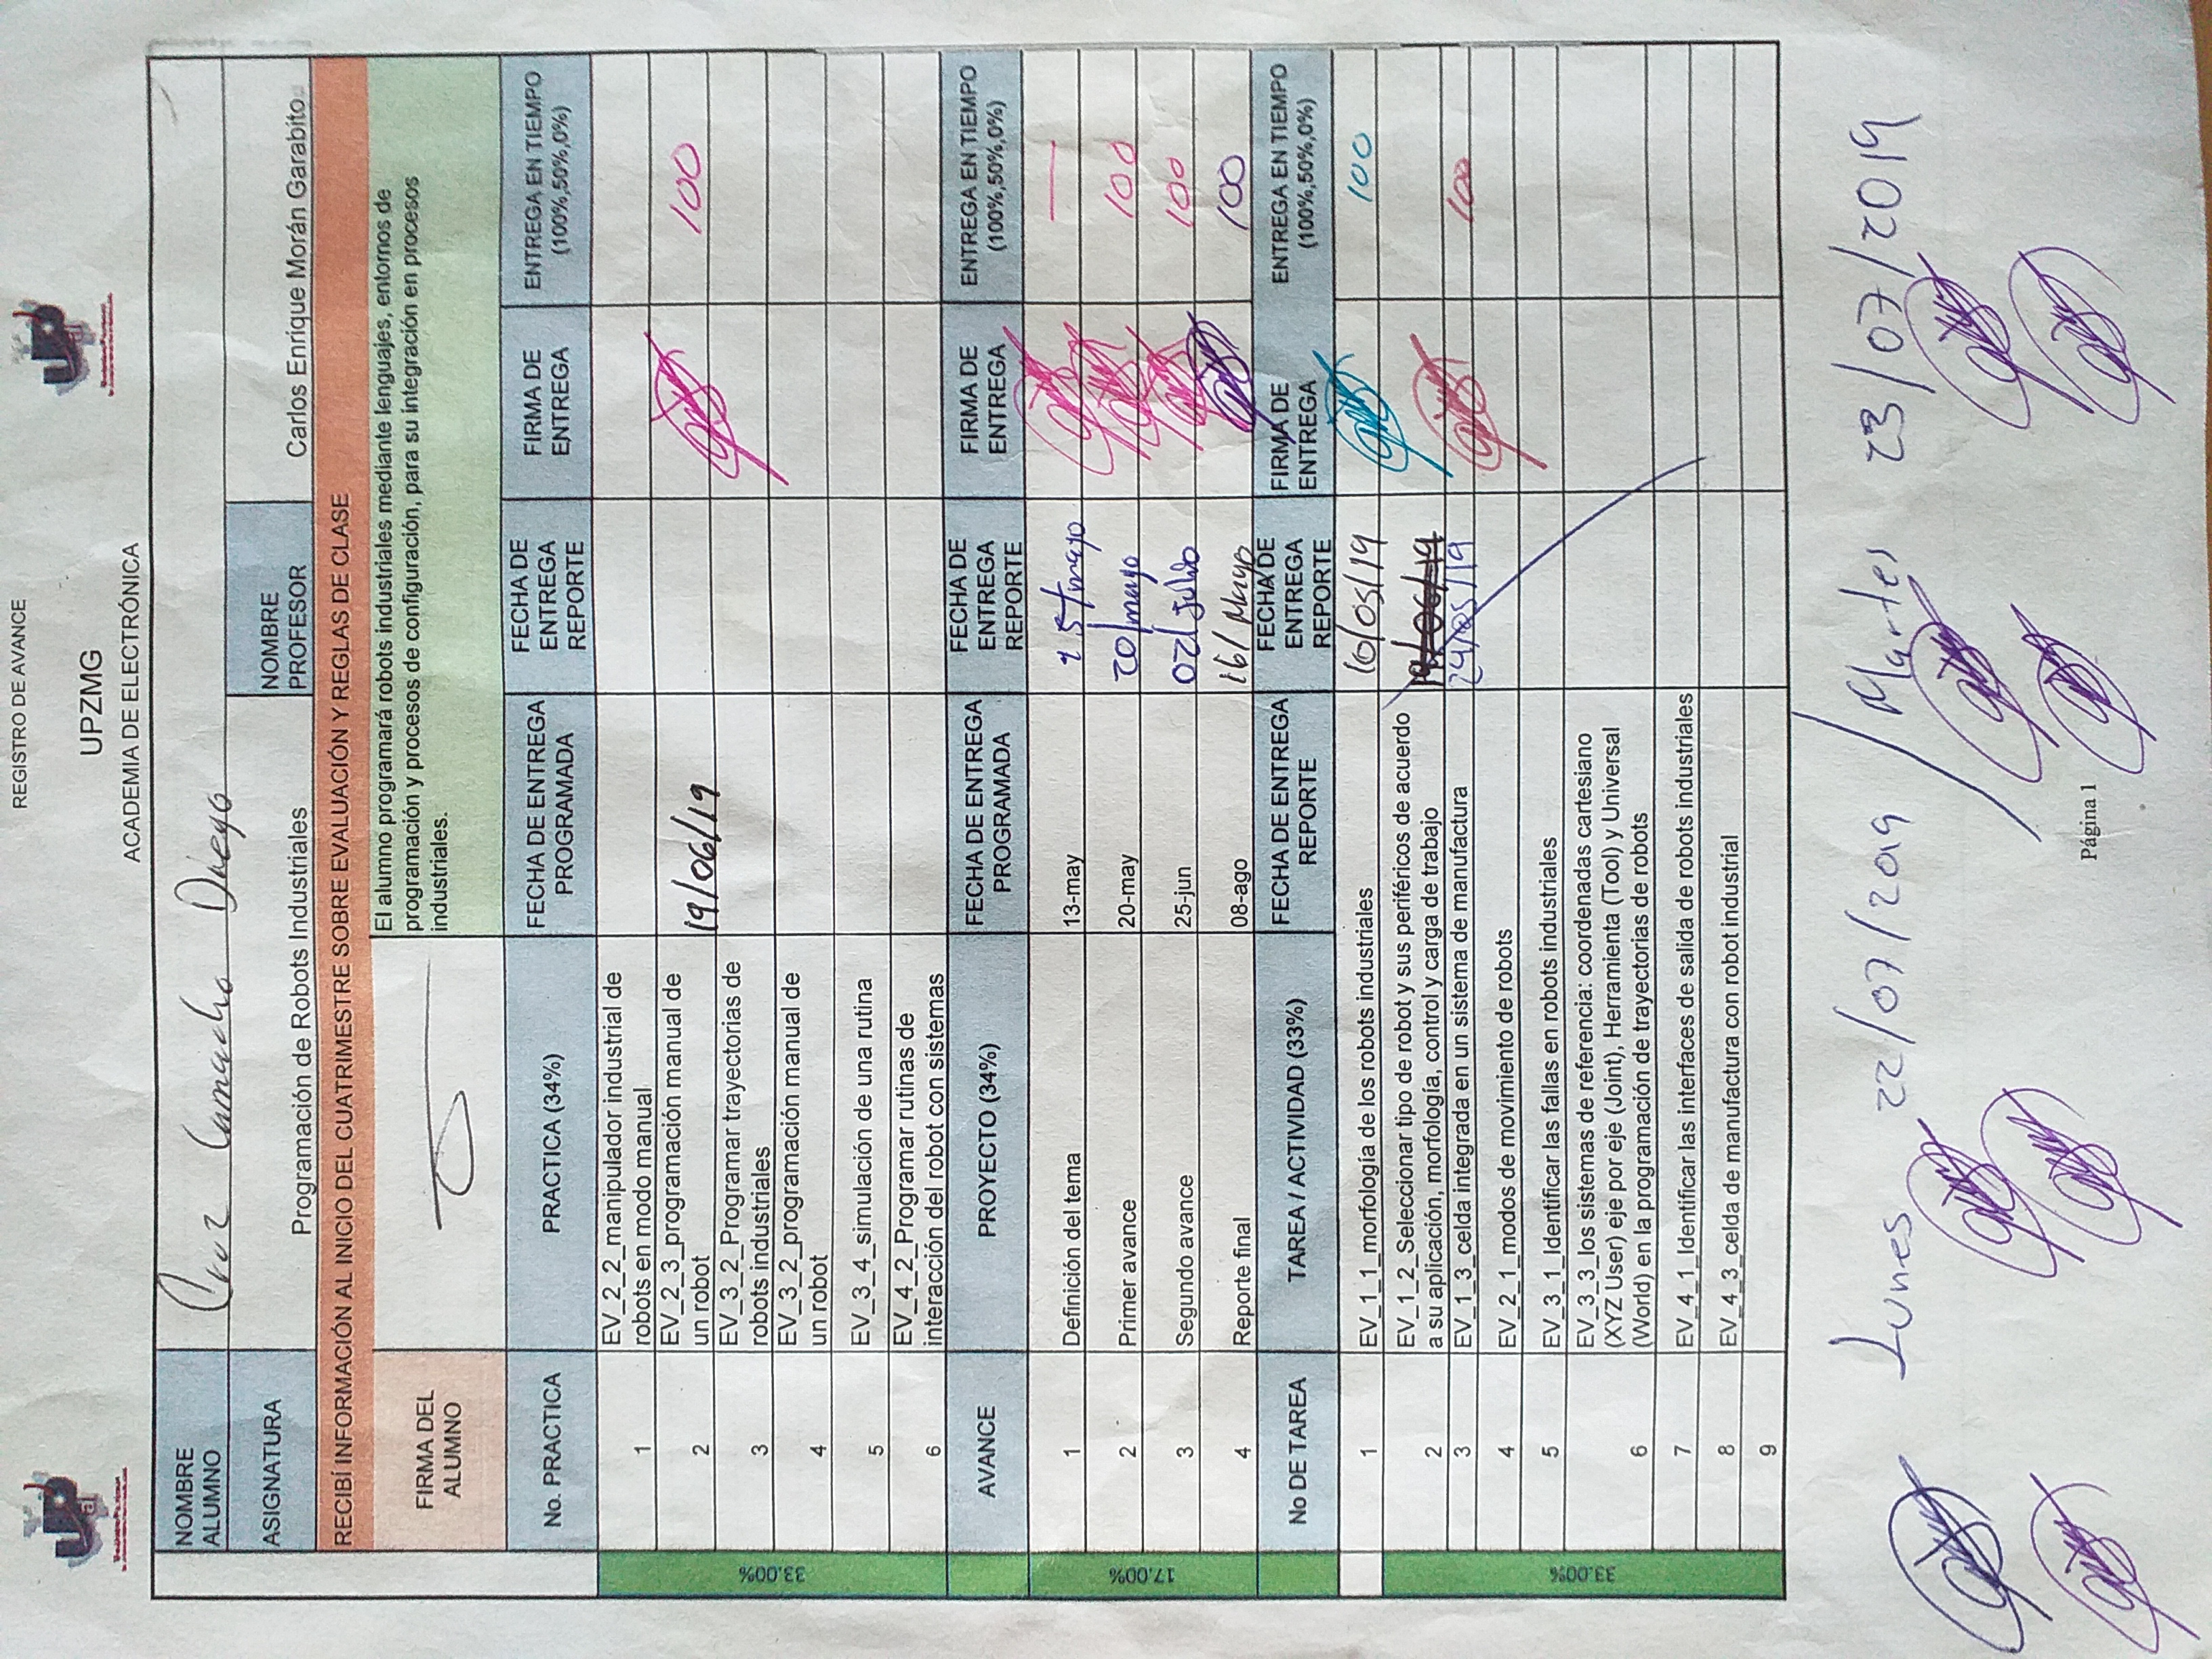 REGISTRO DE AVANCE
UPZMG
ACADEMIA DE ELECTRÓNICA
NOMBRE ALUMNO Cruz Camacho Diego
ASIGNATURA Programación de Robots Industriales NOMBRE PROFESOR Carlos Enrique Morán Garabito
RECIBÍ INFORMACIÓN AL INICIO DEL CUATRIMESTRE SOBRE EVALUACIÓN Y REGLAS DE CLASE
FIRMA DEL ALUMNO
El alumno programará robots industriales mediante lenguajes, entornos de
programación y procesos de configuración, para su integración en procesos
industriales.
No. PRACTICA PRACTICA (34%) FECHA DE ENTREGA PROGRAMADA FECHA DE ENTREGA REPORTE FIRMA DE ENTREGA ENTREGA EN TIEMPO (100%,50%,0%)
33.00%
1 EV_2_2_manipulador industrial de robots en modo manual
2 EV_2_3_programación manual de un robot 19/06/19 100
3 EV_3_2_Programar trayectorias de robots industriales
4 EV_3_2_programación manual de un robot
5 EV_3_4_simulación de una rutina
6 EV_4_2_Programar rutinas de interacción del robot con sistemas
AVANCE PROYECTO (34%) FECHA DE ENTREGA PROGRAMADA FECHA DE ENTREGA REPORTE FIRMA DE ENTREGA ENTREGA EN TIEMPO (100%,50%,0%)
17.00%
1 Definición del tema 13-may 15/mayo
2 Primer avance 20-may 20/mayo 100
3 Segundo avance 25-jun 02/Julio 100
4 Reporte final 08-ago 16/Mayo 100
No DE TAREA TAREA / ACTIVIDAD (33%) FECHA DE ENTREGA REPORTE FECHA DE ENTREGA REPORTE FIRMA DE ENTREGA ENTREGA EN TIEMPO (100%,50%,0%)
33.00%
1 EV_1_1_morfología de los robots industriales 10/05/19 100
2 EV_1_2_Seleccionar tipo de robot y sus periféricos de acuerdo a su aplicación, morfología, control y carga de trabajo 19/06/19
3 EV_1_3_celda integrada en un sistema de manufactura 24/05/19 100
4 EV_2_1_modos de movimiento de robots
5 EV_3_1_Identificar las fallas en robots industriales
6 EV_3_3_los sistemas de referencia: coordenadas cartesiano (XYZ User) eje por eje (Joint), Herramienta (Tool) y Universal (World) en la programación de trayectorias de robots
7 EV_4_1_Identificar las interfaces de salida de robots industriales
8 EV_4_3_celda de manufactura con robot industrial
9
Lunes 22/07/2019 / Martes 23/07/2019
Página 1